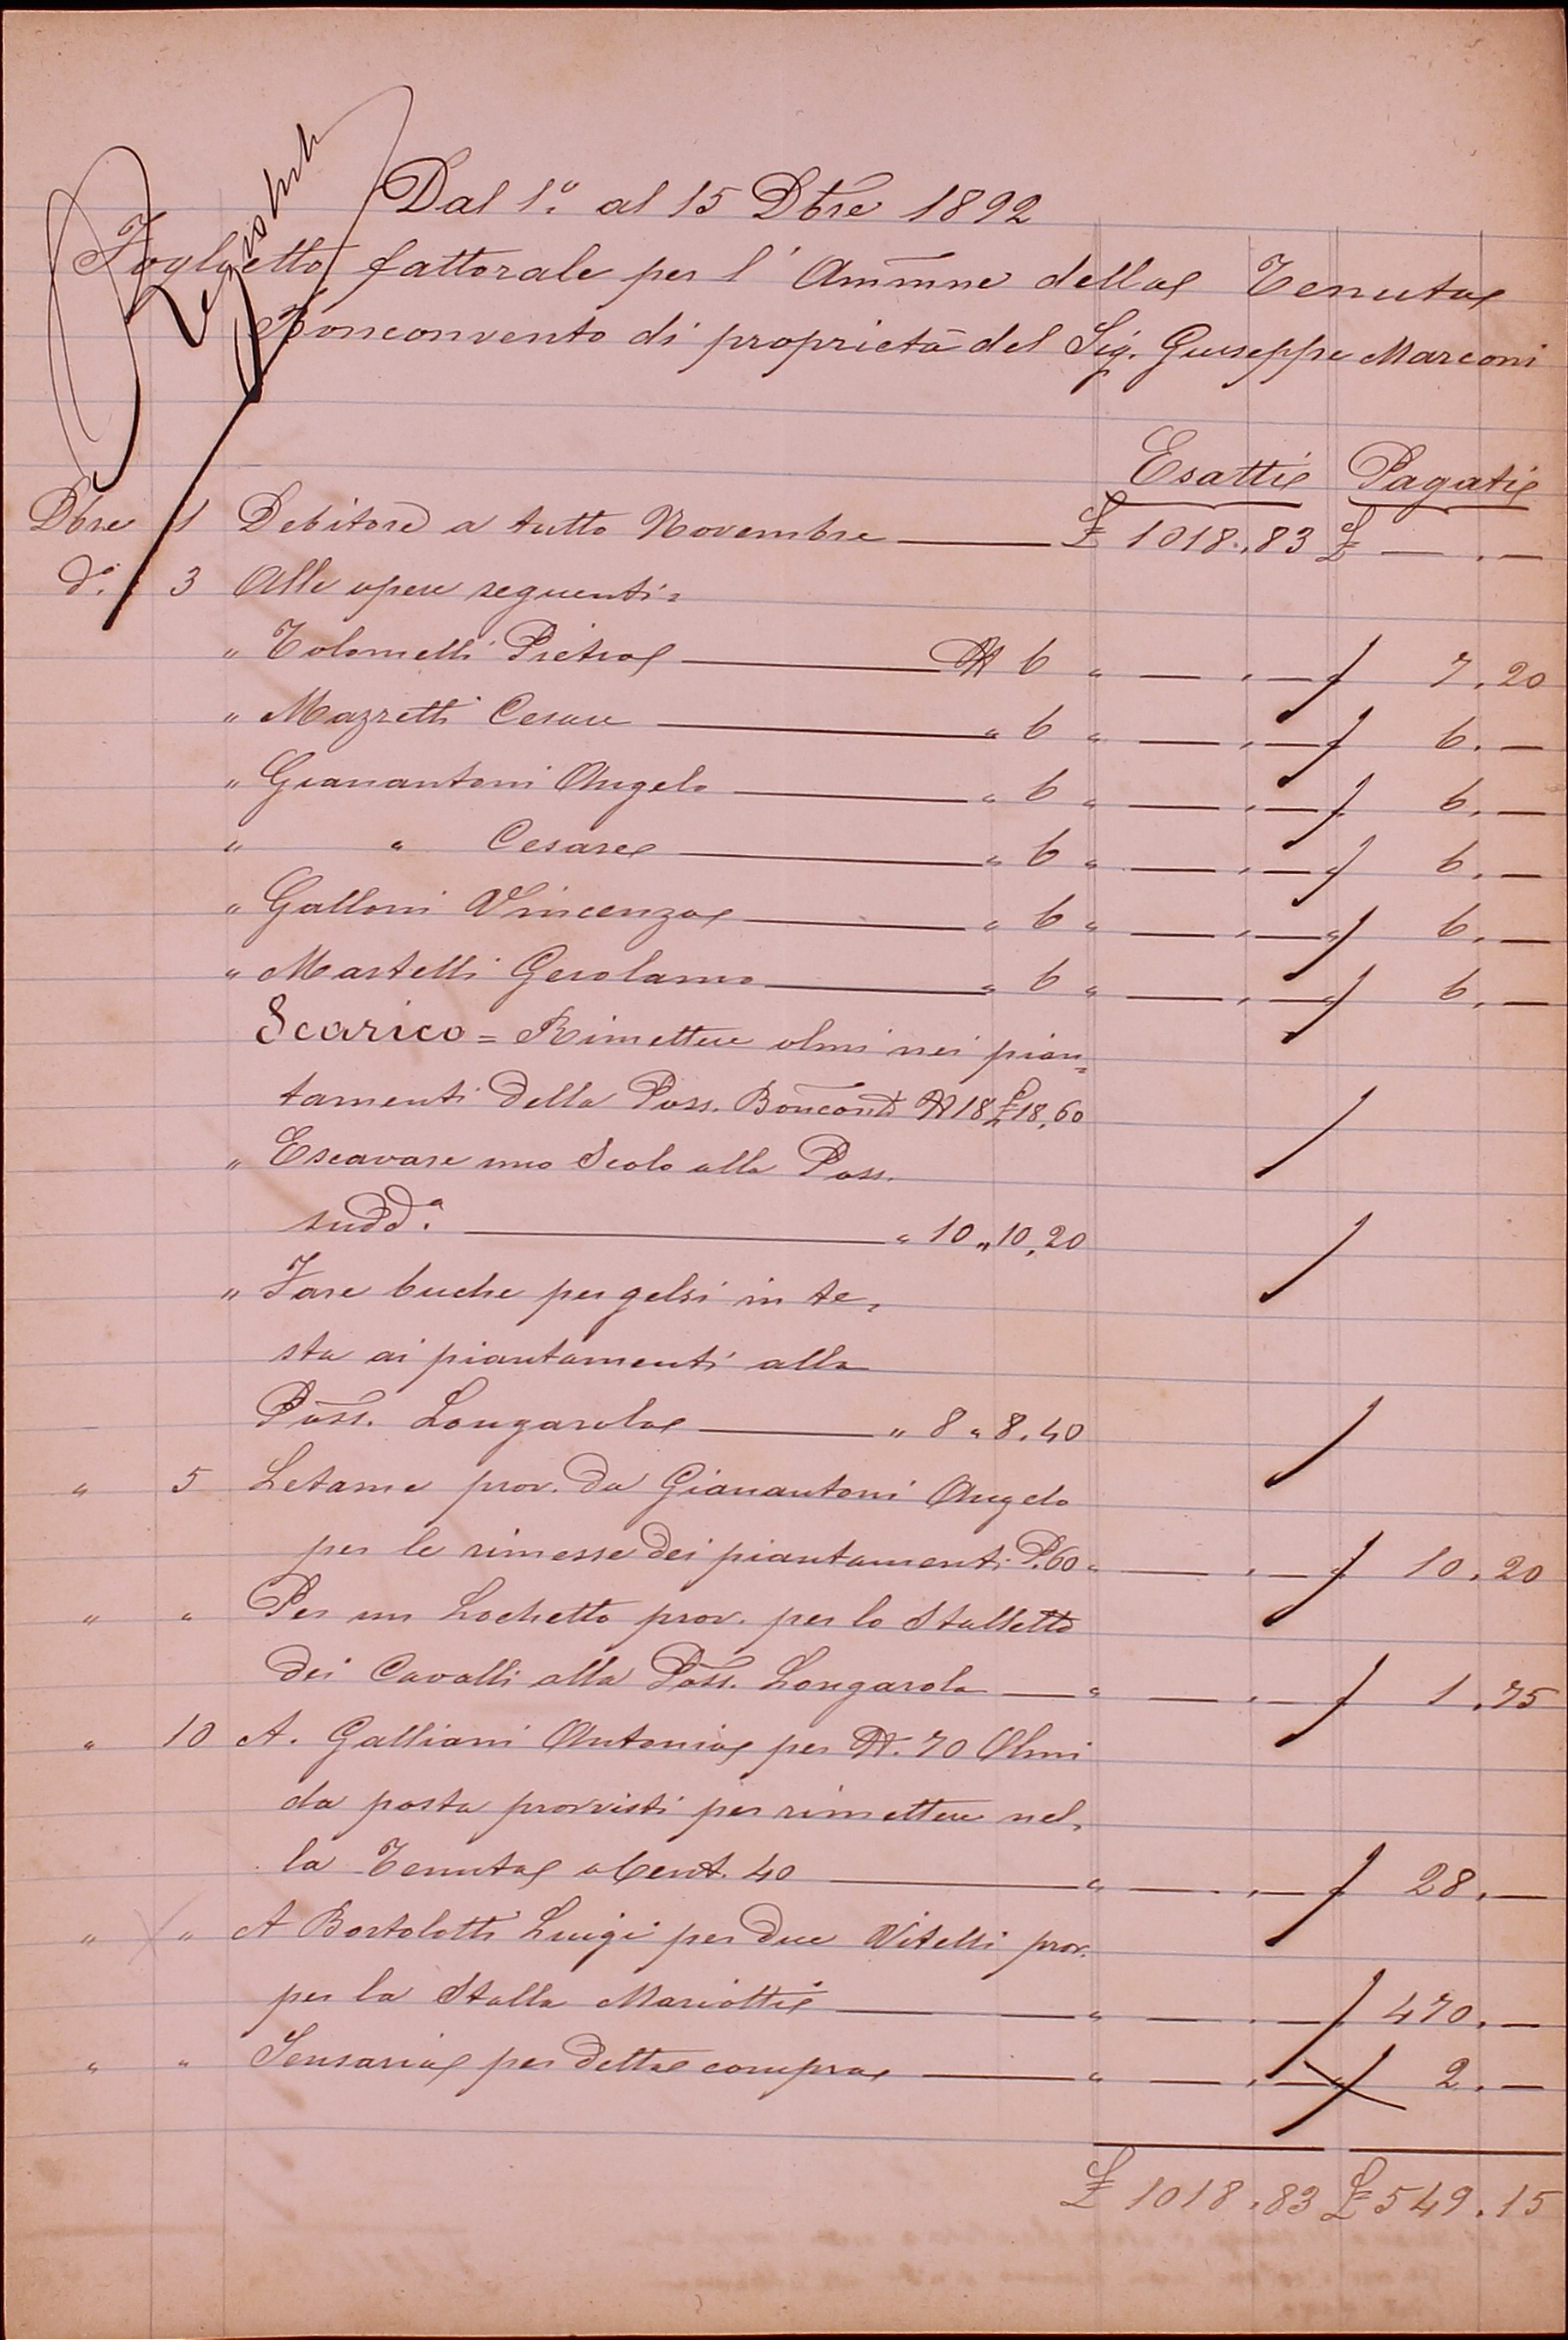 Dal 1.º al 15 Dbre 1892
Foglietto fattorale per l'Ammne della Tenuta
Bonconvento di proprietà del Sig. Giuseppe Marconi
Esatti Pagati
Dbre 1 Debitore a tutto Novembre £ 1018.,83 £ — . —
dº. 3 Alle opere seguenti =
„ Tolomelli Pietro N 6 „ — . — „ 7.20
„ Mazzetti Cesare „ 6 „ — . — „ 6. —
„ Gianantoni Angelo „ 6 „ — . — „ 6. —
„ „ Cesare „ 6 „ — . — „ 6. —
„ Galloni Vincenzo „ 6 „ — . — „ 6. —
„ Martelli Gerolamo „ 6 „ — . — „ 6. —
Scarico = Rimettere olmi nei pian=
tamenti della Poss. Boncontº N 18 £ 18,60
„ Escavare uno Scolo alla Poss.
sudd.ª „ 10 „ 10,20
„ Fare buche per gelsi in te=
sta ai piantamenti alla
Poss. Longarola „ 8 „ 8.40
„ 5 Letame prov. da Gianantoni Angelo
per le rimesse dei piantamenti P. 60 „ — . — „ 10.20
„ „ Per un Lochetto prov. per lo Stalletto
dei Cavalli alla Poss. Longarola — „ — . — „ 1.75
„ 10 A. Galliani Antonio per N. 70 Olmi
da posta provvisti per rimettere nel=
la Tenuta a Cent. 40 „ — . — „ 28. —
„ „ A Bortolotti Luigi per due Vitelli prov.
per la Stalla Mariotti „ — . — „ 470. —
„ „ Sensaria per detta compra „ — . — „ 2. —
£ 1018.83 £ 549.15